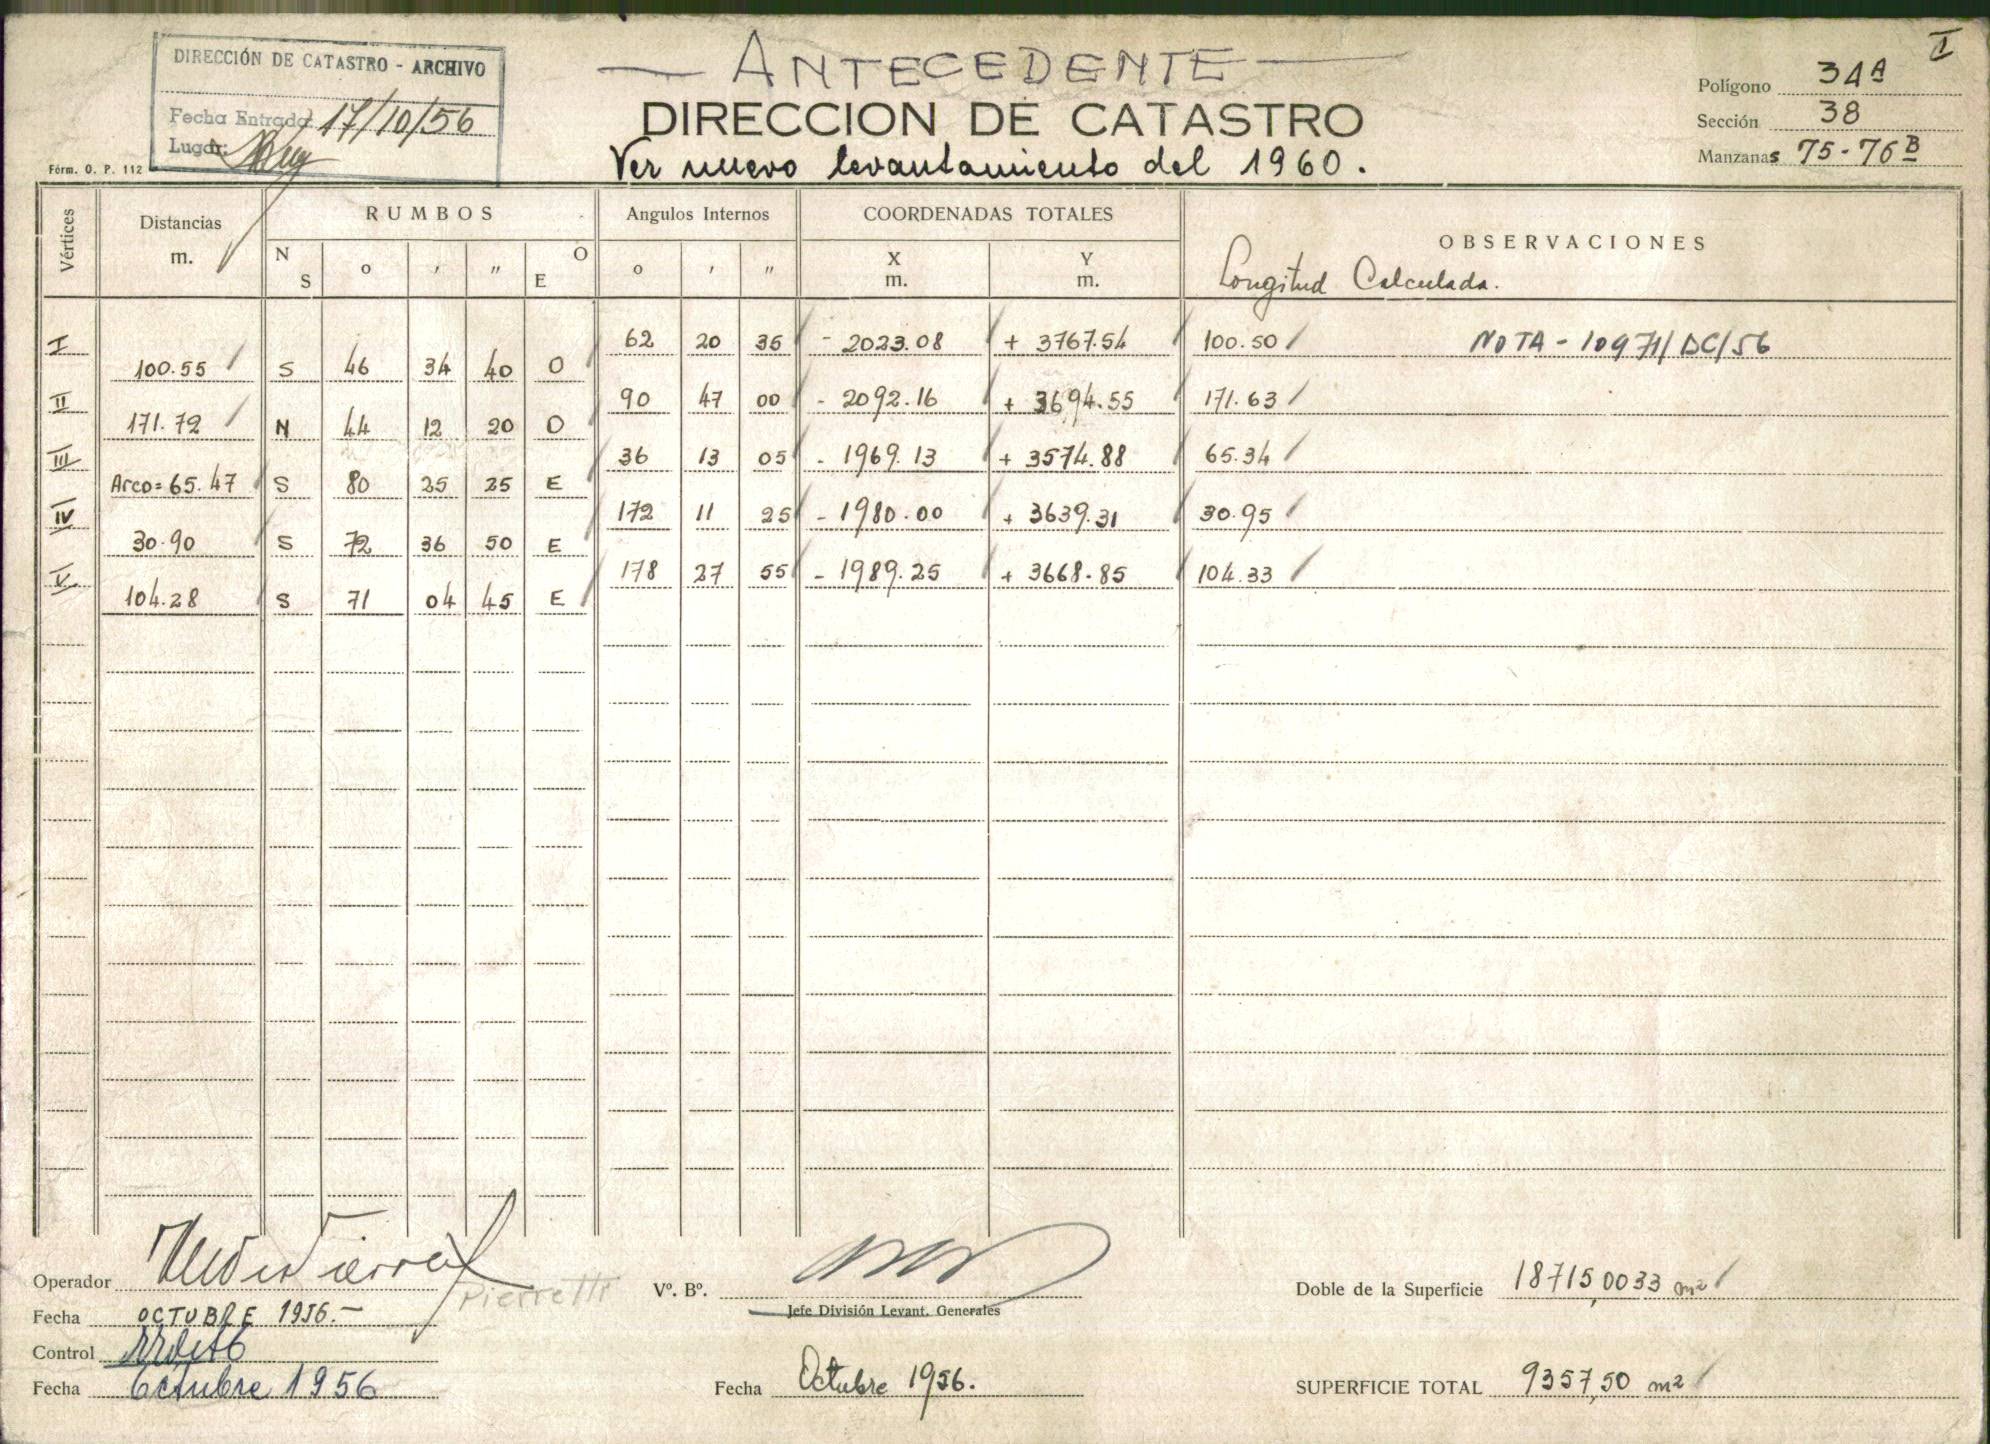 I
— ANTECEDENTE —
DIRECCIÓN DE CATASTRO - ARCHIVO
Fecha Entrada: 17/10/56
Lugar:
DIRECCION DE CATASTRO
Ver nuevo levantamiento del 1960.
Polígono 34A
Sección 38
Manzanas 75-76B
Fórm. O. P. 112
Vértices Distancias m. RUMBOS Angulos Internos COORDENADAS TOTALES OBSERVACIONES
N S o ' " O E o ' " X m. Y m. Longitud Calculada.
I 62 20 35 - 2023.08 + 3767.54 100.50 NOTA - 10971/DC/56
100.55 S 46 34 40 O
II 90 47 00 - 2092.16 + 3694.55 171.63
171.72 N 44 12 20 O
III 36 13 05 - 1969.13 + 3574.88 65.34
Arco=65.47 S 80 25 25 E
IV 172 11 25 - 1980.00 + 3639.31 30.95
30.90 S 72 36 50 E
V 178 27 55 - 1989.25 + 3668.85 104.33
104.28 S 71 04 45 E
Operador
Pierretti
Fecha OCTUBRE 1956.-
Control
Fecha Octubre 1956
Vº. Bº.
Jefe División Levant. Generales
Fecha Octubre 1956.
Doble de la Superficie 18715,0033 m2
SUPERFICIE TOTAL 9357,50 m2